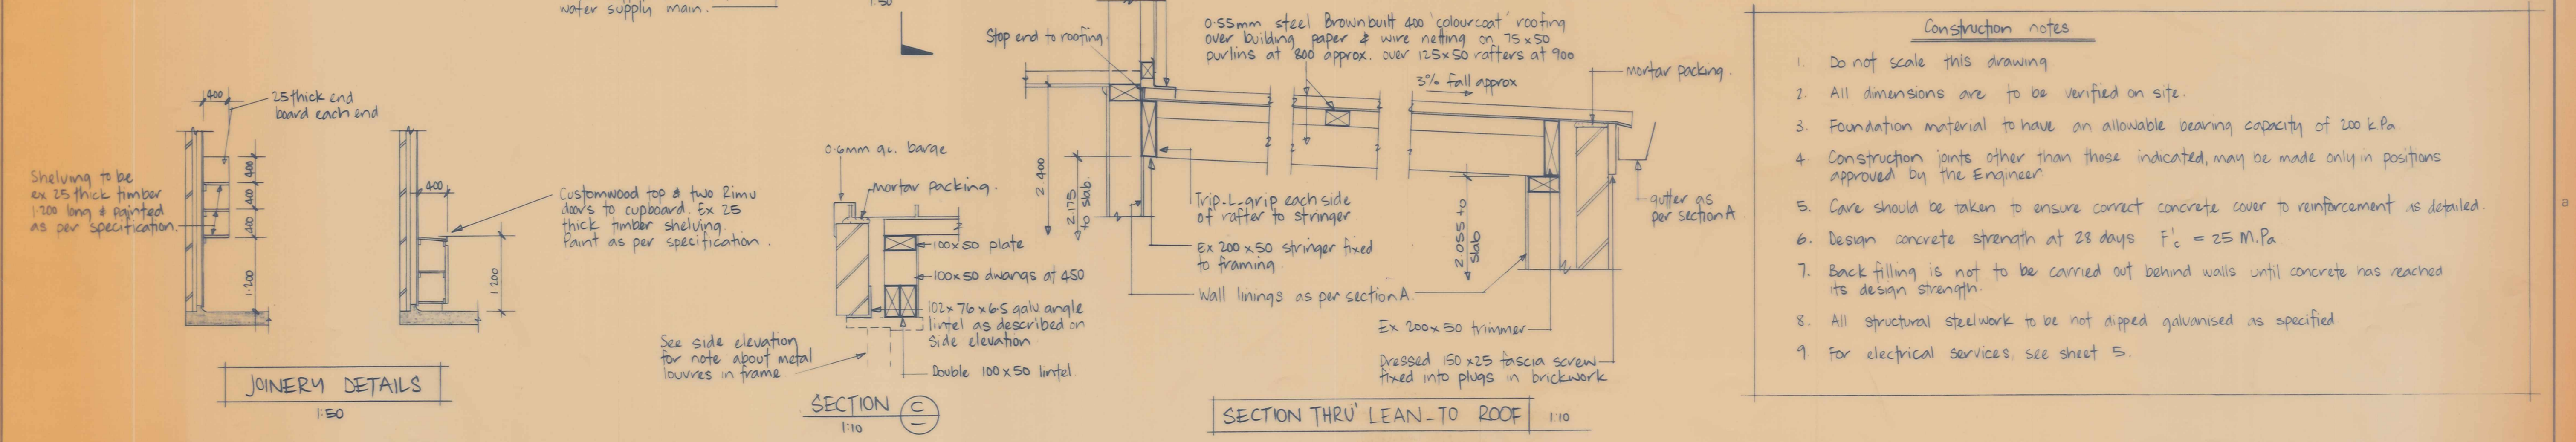 water supply main.
1:50
400
25 thick end
board each end
Shelving to be
ex 25 thick timber
1·200 long & painted
as per specification.
400
400
400
1·200
400
Customwood top & two Rimu
doors to cupboard. Ex 25
thick timber shelving.
Paint as per specification.
1·200
JOINERY DETAILS
1:50
0·6mm g.c. barge
mortar packing.
100x50 plate
100x50 dwangs at 450
102x76x6·5 galv angle
lintel as described on
side elevation
Double 100x50 lintel
See side elevation
for note about metal
louvres in frame
SECTION C
1:10
Stop end to roofing
0·55mm steel Brownbuilt 400 'colourcoat' roofing
over building paper & wire netting on 75x50
purlins at 800 approx. over 125x50 rafters at 900
3% fall approx
mortar packing.
2·400
2·175
to slab.
Trip-L-grip each side
of rafter to stringer
Ex 200x50 stringer fixed
to framing
Wall linings as per section A.
2·055 to
slab
gutter as
per section A.
Ex 200x50 trimmer
Dressed 150x25 fascia screw
fixed into plugs in brickwork
SECTION THRU' LEAN-TO ROOF 1:10
Construction notes
1. Do not scale this drawing
2. All dimensions are to be verified on site.
3. Foundation material to have an allowable bearing capacity of 200 kPa
4 Construction joints other than those indicated, may be made only in positions
approved by the Engineer
5. Care should be taken to ensure correct concrete cover to reinforcement as detailed.
6. Design concrete strength at 28 days F'c = 25 M.Pa
7. Back filling is not to be carried out behind walls until concrete has reached
its design strength.
8. All structural steelwork to be hot dipped galvanised as specified
9 For electrical services, see sheet 5.
a